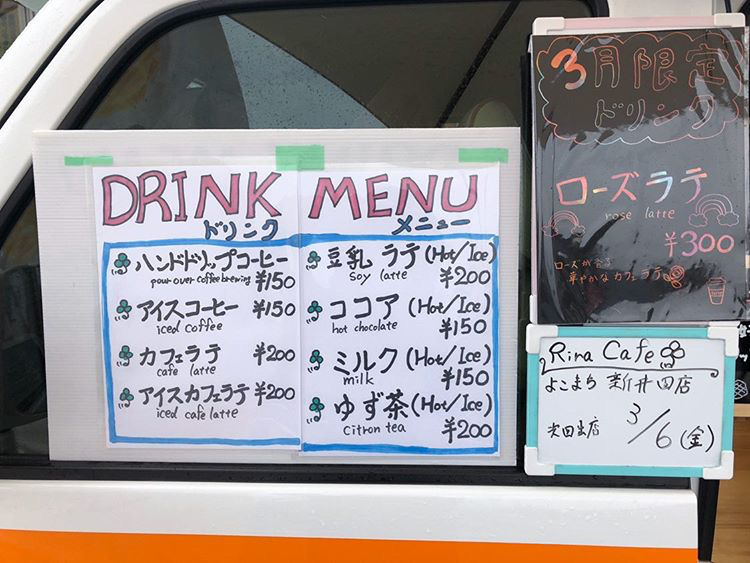 DRINK MENU
ドリンク メニュー
ハンドドリップコーヒー
pour over coffee brewing ¥150
アイスコーヒー ¥150
iced coffee
カフェラテ ¥200
cafe latte
アイスカフェラテ ¥200
iced cafe latte
豆乳 ラテ (Hot/Ice)
soy latte ¥200
ココア (Hot/Ice)
hot chocolate ¥150
ミルク (Hot/Ice)
milk ¥150
ゆず茶 (Hot/Ice)
Citron tea ¥200
3月限定
ドリンク
ローズラテ
rose latte
¥300
ローズが香る
華やかなカフェラテ
Rina Cafe
よこまち 新井田店
次回出店 3/6(金)